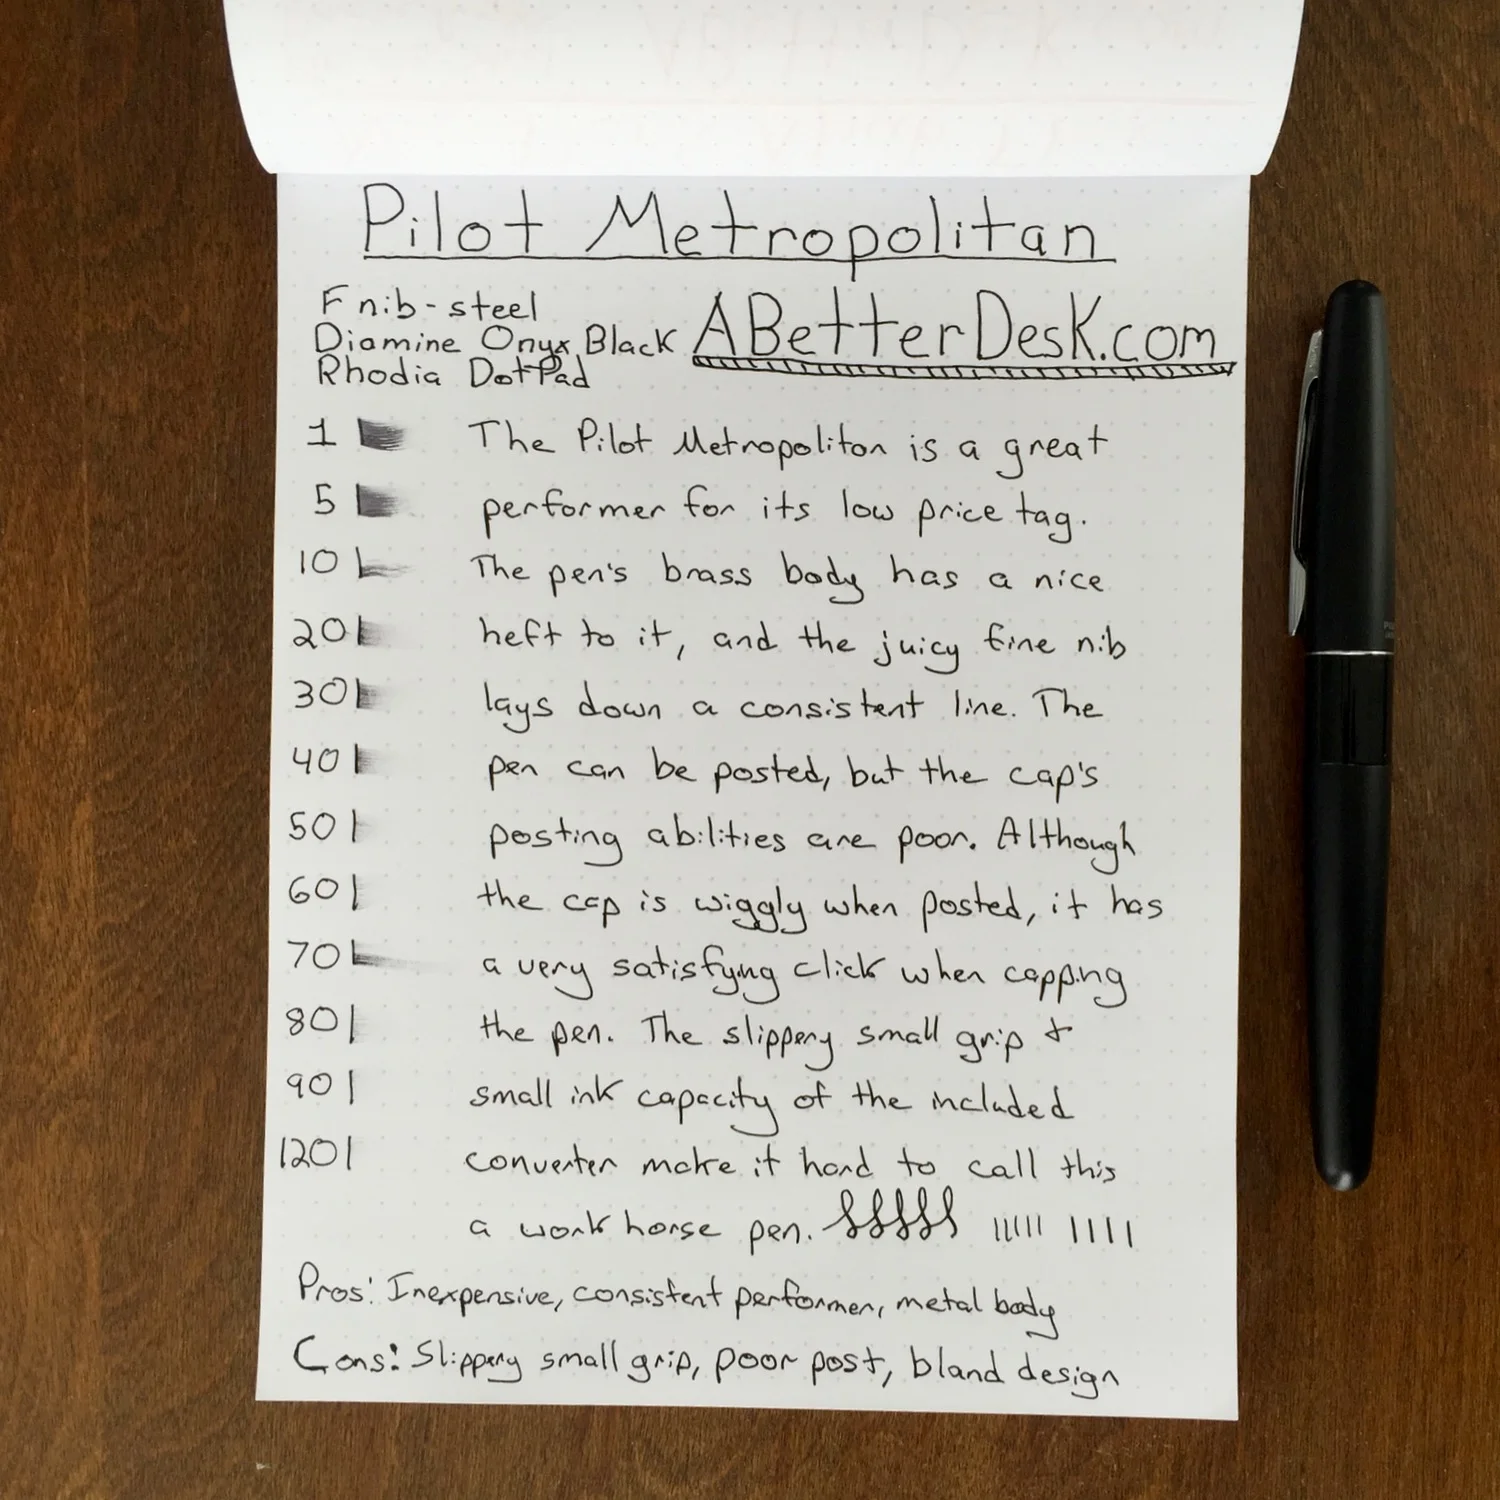 Pilot Metropolitan
F nib - steel
Diamine Onyx Black
Rhodia DotPad
ABetterDesk.com
1 The Pilot Metropolitan is a great
5 performer for its low price tag.
10 The pen's brass body has a nice
20 heft to it, and the juicy fine nib
30 lays down a consistent line. The
40 pen can be posted, but the cap's
50 posting abilities are poor. Although
60 the cap is wiggly when posted, it has
70 a very satisfying click when capping
80 the pen. The slippery small grip +
90 small ink capacity of the included
120 converter make it hard to call this
a work horse pen.
Pros: Inexpensive, consistent performer, metal body
Cons: Slippery small grip, poor post, bland design